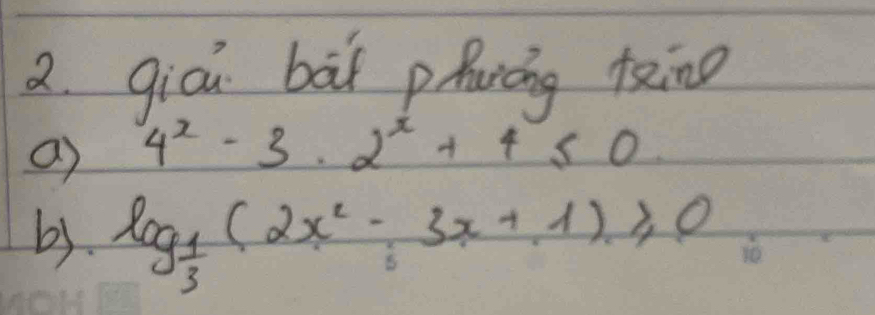 2. giải bất phương trình
a) 4^x - 3 . 2^x + 4 ≤ 0.
b). log_{1/3} (2x² - 3x + 1) ≥ 0
5 10